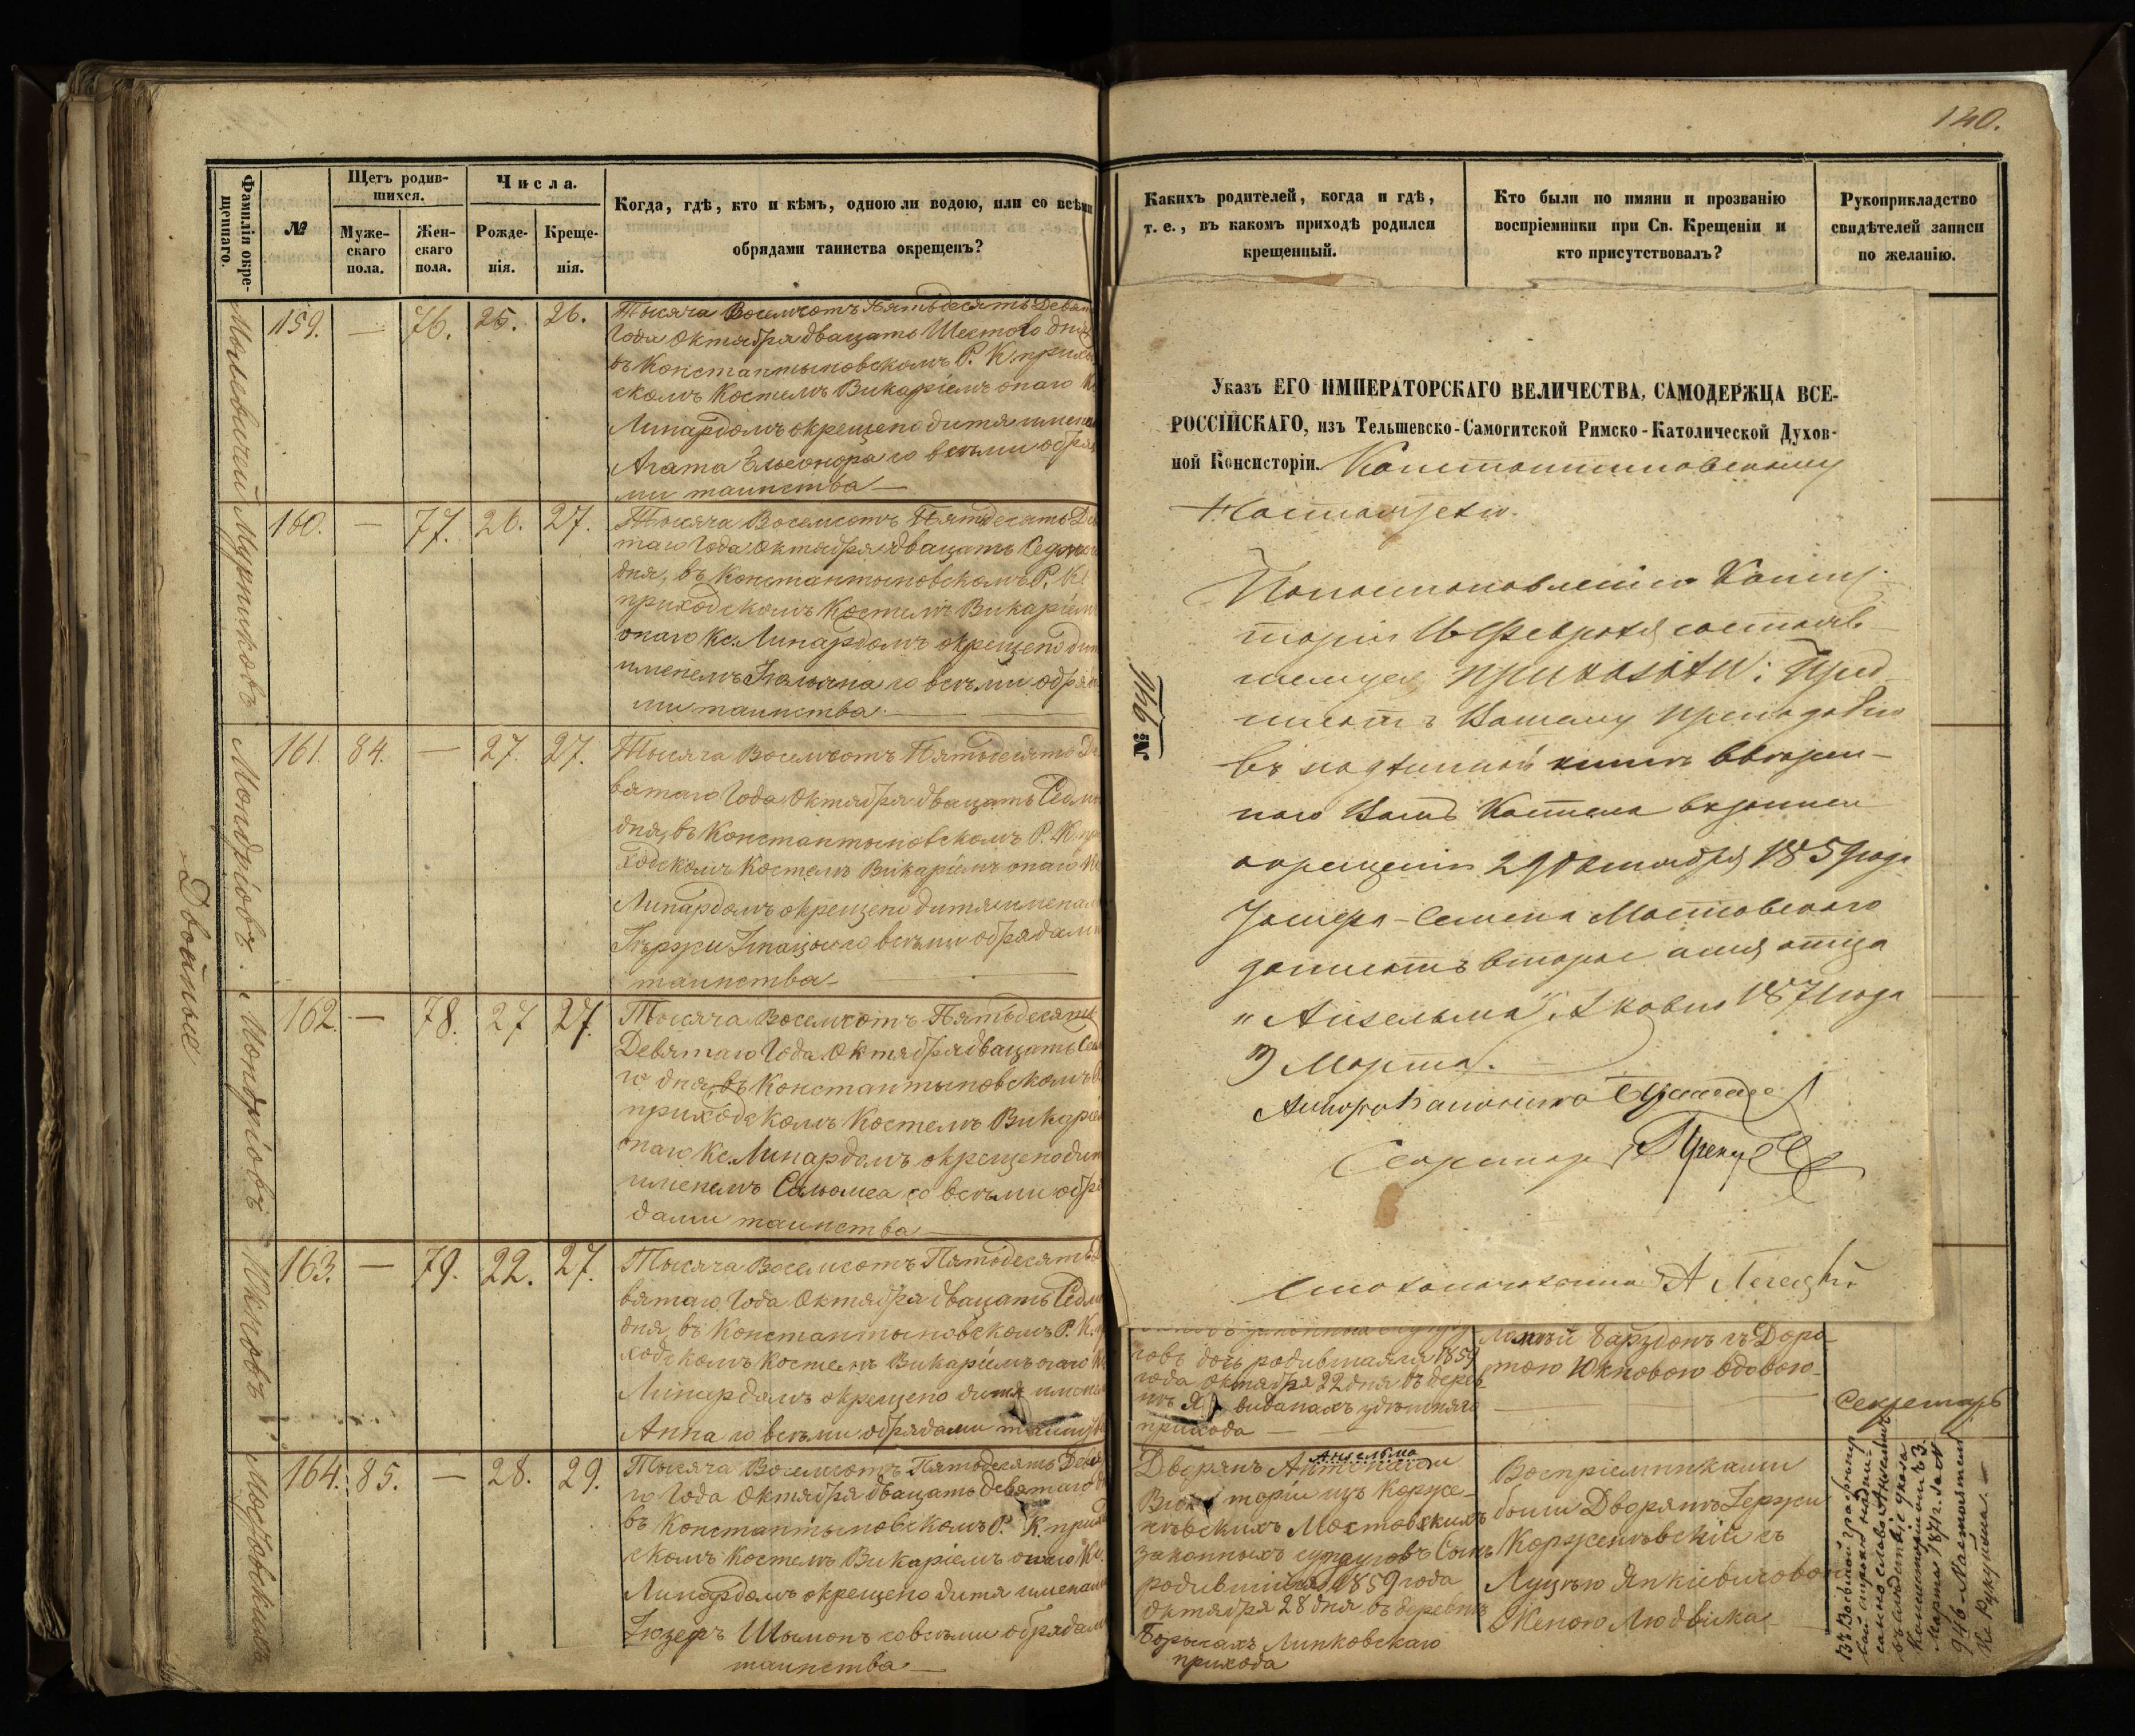 Фамилія окре-
щеннаго.
№
Щетъ родив-
шихся.
Муже-
скаго
пола.
Жен-
скаго
пола.
Числа.
Рожде-
нія.
Креще-
нія.
Когда, гдѣ, кто и кѣмъ, одною ли водою, или со всѣми
обрядами таинства окрещенъ?
159. — 76. 25. 26.
Тысяча Восемсотъ Пятьдесятъ Девя
Года Октября двацать Шестого дня
въ Константыновскомъ Р. К. прихо
скомъ Костелѣ Викаріемъ онаго К
Линардомъ окрещено дитя имене
Агата Елеонора со всѣми обря
ми таинства —
Мурниковъ
160. — 77. 26. 27.
Тысяча Восемсотъ Пятдесятъ Де
таго Года Октября двацать Седмо
дня, въ Константыновскомъ Р. К.
приходскомъ Костелѣ Викаріем
онаго Кс. Линардомъ окрещено дит
именемъ со всѣми обряд
ми таинства —
Мондріовъ.
Двойные
161. 84. — 27. 27.
Тысяча Восемсотъ Пятьдесятъ Де
вятаго Года Октября двацать Седмо
дня, въ Константыновскомъ Р. К. пр
ходскомъ Костелѣ Викаріемъ онаго К
Линардомъ окрещено дитя именам
со всѣми обрядами
таинства —
Мондріовъ
162. — 78. 27 27.
Тысяча Восемсотъ Пятьдесятъ
Девятаго Года Октября двацать Сед
го дня, въ Константыновскомъ
приходскомъ Костелѣ Викаріе
онаго Кс. Линардомъ окрещено дит
именемъ Саломеа со всѣми обря
дами таинства —
Юкновъ
163. — 79. 22. 27.
Тысяча Восемсотъ Пятьдесятъ Де
вятаго Года Октября двацать Седмо
дня, въ Константыновскомъ Р. К.
ходскомъ Костелѣ Викаріемъ онаго К
Линардомъ окрещено дитя имене
Анна со всѣми обрядами таинств
Мостовскихъ
164. 85. — 28. 29.
Тысяча Восемсотъ Пятьдесятъ Девя
го Года Октября двацать девятаго
въ Константыновскомъ Р. К. прихо
скомъ Костелѣ Викаріемъ онаго Кс.
Линардомъ окрещено дитя именам
Іюзефъ Шымонъ со всѣми обрядам
таинства —
140.
Какихъ родителей, когда и гдѣ,
т. е., въ какомъ приходѣ родился
крещенный.
Кто были по имяни и прозванію
воспріемники при Св. Крещеніи и
кто присутствовалъ?
Рукоприкладство
свидѣтелей записи
по желанію.
Указъ ЕГО ИМПЕРАТОРСКАГО ВЕЛИЧЕСТВА, САМОДЕРЖЦА ВСЕ-
РОССІЙСКАГО, изъ Тельшевско-Самогитской Римско-Католической Духов-
ной Консисторіи. Константиновскому
Настоятелю.
№ 946
По постановленію Конси-
сторіи Февраля состояв-
шемуся приказали: Пред
писать Вашему преподобію
въ подлинной книгѣ ввѣрен-
наго Вамъ Костела въ
окрещеніи 29 Октября 1859 года
Іосифа-Семена Мостовскаго
записать второе имя отца
„Ансельма“. Ковно 1871 года
3 Марта.
Секретарь
Столоначальникъ А.
говъ дочь родившаяся 1859
года Октября 22 дня въ дерев-
нѣ видахъ здѣшняго
прихода —
съ Доро
тою Юкновою вдовою —
Секретарь
Ансельма
Дворянъ Антонаго и
Викторіи изъ Корже-
нѣвскихъ Мостовскихъ
законныхъ супруговъ Сынъ
родившійся 1859 года
Октября 28 дня въ деревнѣ
Борысахъ Линковскаго
прихода
Воспріемниками
были Дворянъ Іержи
Корженѣвскій съ
Луцыею Янкіевичовою
Женою Людвика
Въ Восьмой графѣ пер
вой строкѣ надпи
сано слово Ансельмъ
въ слѣдствіе указа
Консисторіи отъ 3.
Марта 1871 г. за №
946. Настоятель
Кс. —